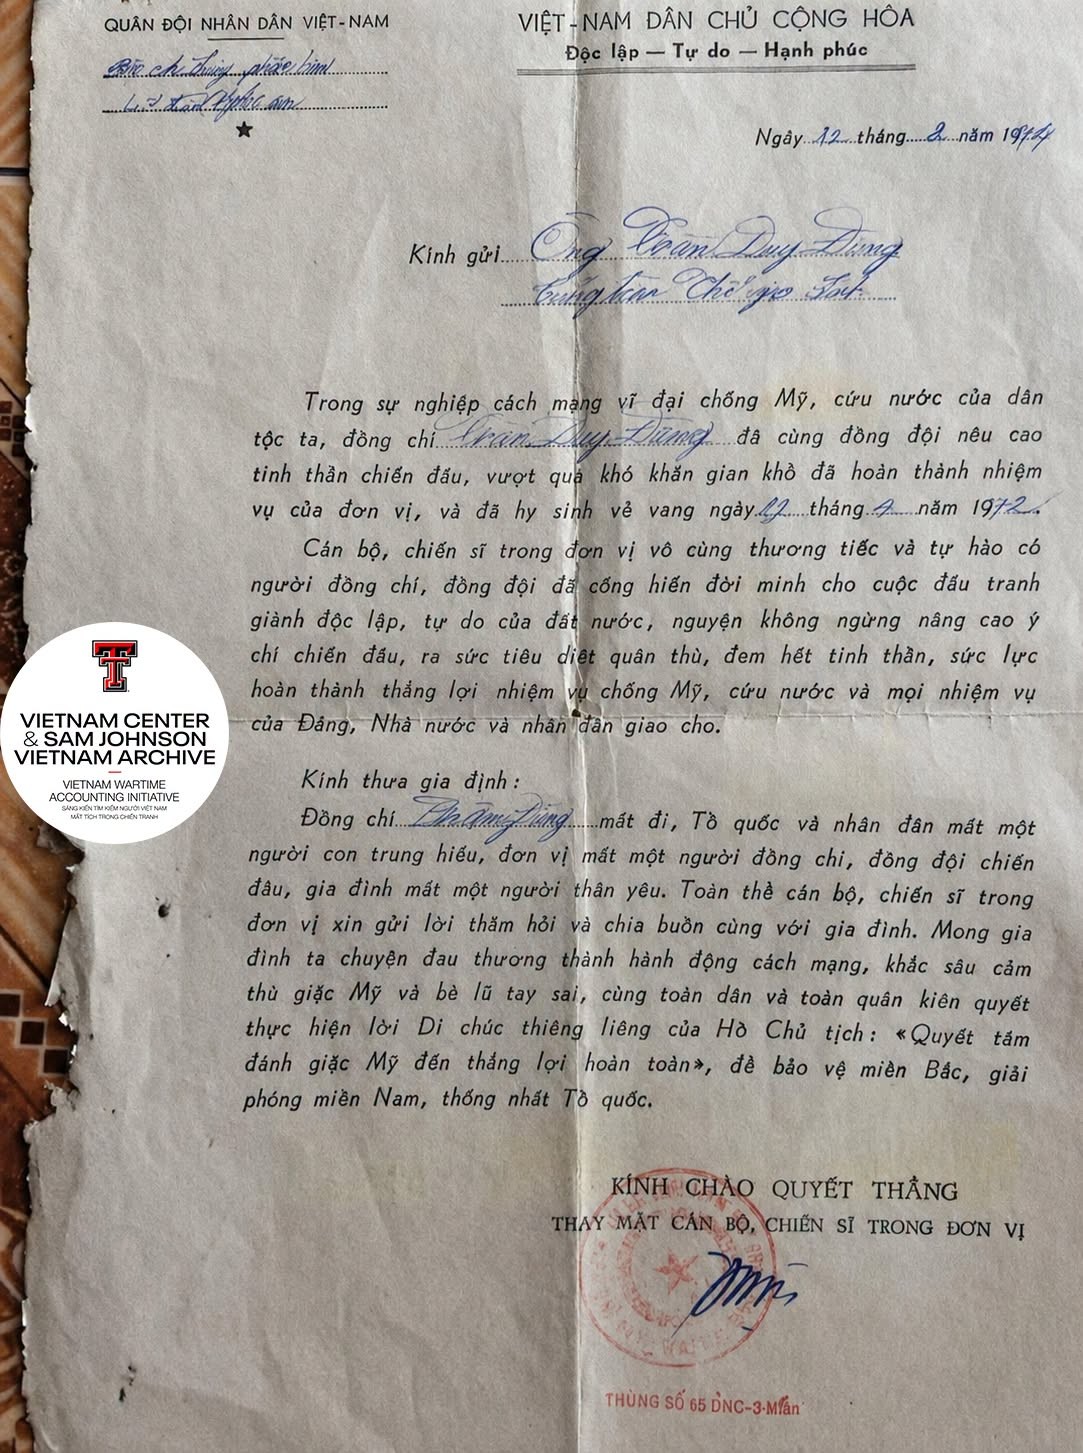 QUÂN ĐỘI NHÂN DÂN VIỆT-NAM
VIỆT-NAM DÂN CHỦ CỘNG HÒA
Độc lập — Tự do — Hạnh phúc
Ngày 12 tháng 2 năm 1974
Kính gửi Ông Trần Duy Dũng
Trong sự nghiệp cách mạng vĩ đại chống Mỹ, cứu nước của dân
tộc ta, đồng chí Trần Duy Dũng đã cùng đồng đội nêu cao
tinh thần chiến đấu, vượt quá khó khăn gian khổ đã hoàn thành nhiệm
vụ của đơn vị, và đã hy sinh vẻ vang ngày 12 tháng 4 năm 1972.
Cán bộ, chiến sĩ trong đơn vị vô cùng thương tiếc và tự hào có
người đồng chí, đồng đội đã cống hiến đời mình cho cuộc đấu tranh
giành độc lập, tự do của đất nước, nguyện không ngừng nâng cao ý
chí chiến đấu, ra sức tiêu diệt quân thù, đem hết tinh thần, sức lực
hoàn thành thắng lợi nhiệm vụ chống Mỹ, cứu nước và mọi nhiệm vụ
của Đảng, Nhà nước và nhân dân giao cho.
Kính thưa gia định:
Đồng chí Dũng mất đi, Tổ quốc và nhân dân mất một
người con trung hiếu, đơn vị mất một người đồng chi, đồng đội chiến
đâu, gia đình mất một người thân yêu. Toàn thể cán bộ, chiến sĩ trong
đơn vị xin gửi lời thăm hỏi và chia buồn cùng với gia đình. Mong gia
đình ta chuyện đau thương thành hành động cách mạng, khắc sâu cảm
thù giặc Mỹ và bè lũ tay sai, cùng toàn dân và toàn quân kiên quyết
thực hiện lời Di chúc thiêng liêng của Hồ Chủ tịch: «Quyết tâm
đánh giặc Mỹ đến thắng lợi hoàn toàn», để bảo vệ miền Bắc, giải
phóng miền Nam, thống nhất Tổ quốc.
KÍNH CHÀO QUYẾT THẮNG
THAY MẶT CÁN BỘ, CHIẾN SĨ TRONG ĐƠN VỊ
THÙNG SỐ 65 DNC-3-Miền
VIETNAM CENTER
& SAM JOHNSON
VIETNAM ARCHIVE
VIETNAM WARTIME
ACCOUNTING INITIATIVE
SÁNG KIẾN TÌM KIẾM NGƯỜI VIỆT NAM
MẤT TÍCH TRONG CHIẾN TRANH